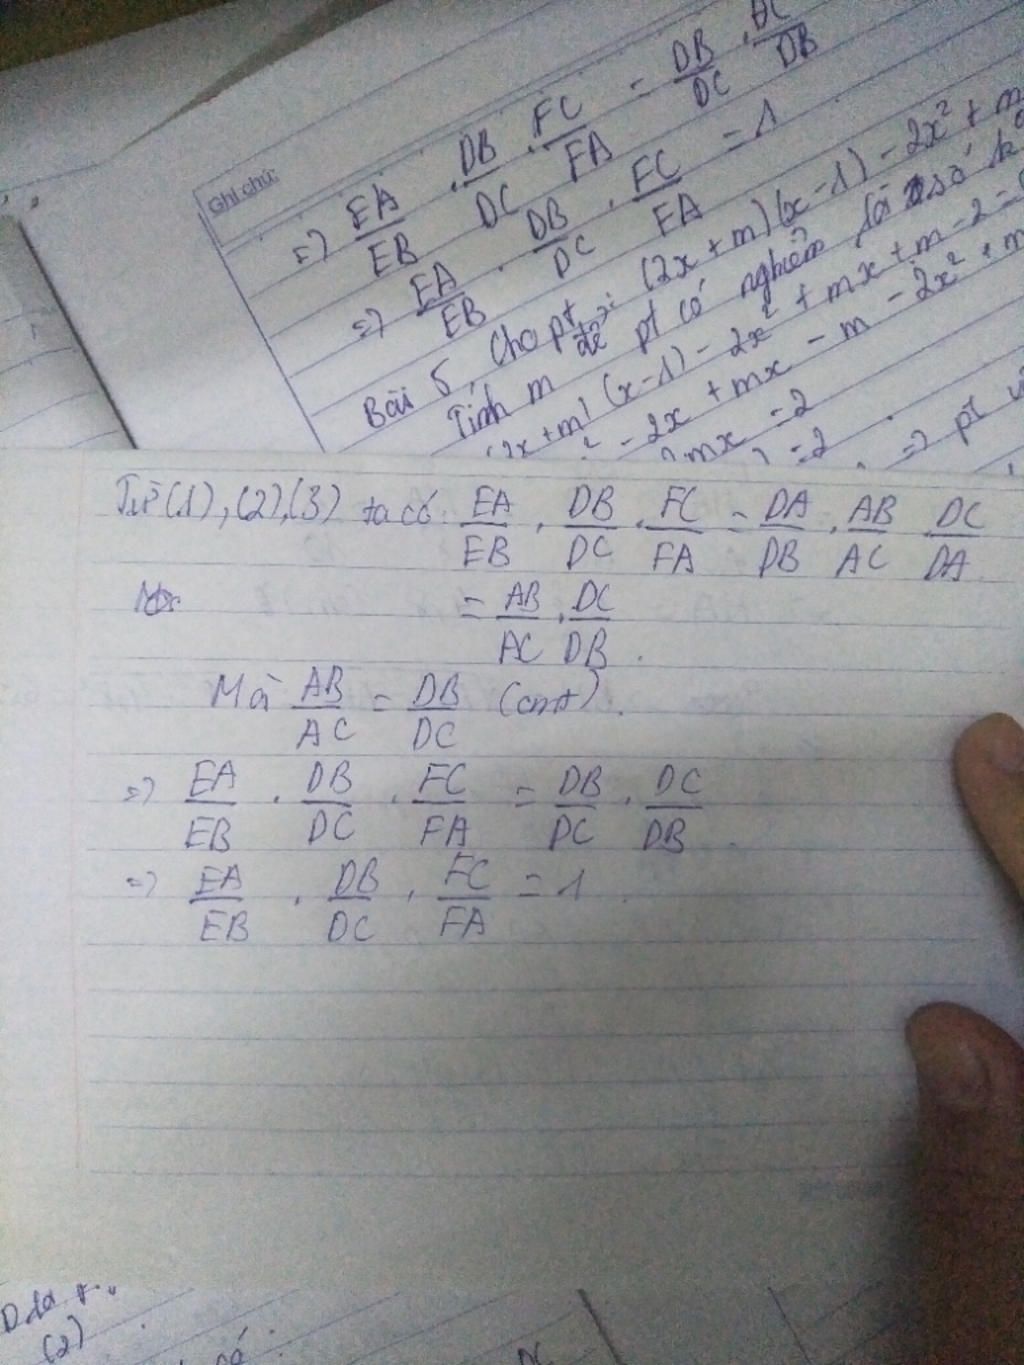 Ghi chú:
=) EA/EB . DB/DC . FC/FA = DB/DC . AC/DB
=) EA/EB . DB/DC . FC/FA = 1
Bài 5, Cho pt: (2x + m)(x - 1) - 2x² + m
Tính m để pt có nghiệm là số k
(2x + m)(x - 1) - 2x² + mx + m - 2 = 0
² - 2x + mx - m - 2x² + m
mx = 2
= 2 => pt
Từ (1), (2), (3) ta có: EA/EB . DB/DC . FC/FA = DA/DB . AB/AC . DC/DA
= AB/AC . DC/DB .
Mà AB/AC = DB/DC (cmt).
=) EA/EB . DB/DC . FC/FA = DB/DC . DC/DB .
=) EA/EB . DB/DC . FC/FA = 1 .
(2)
DC